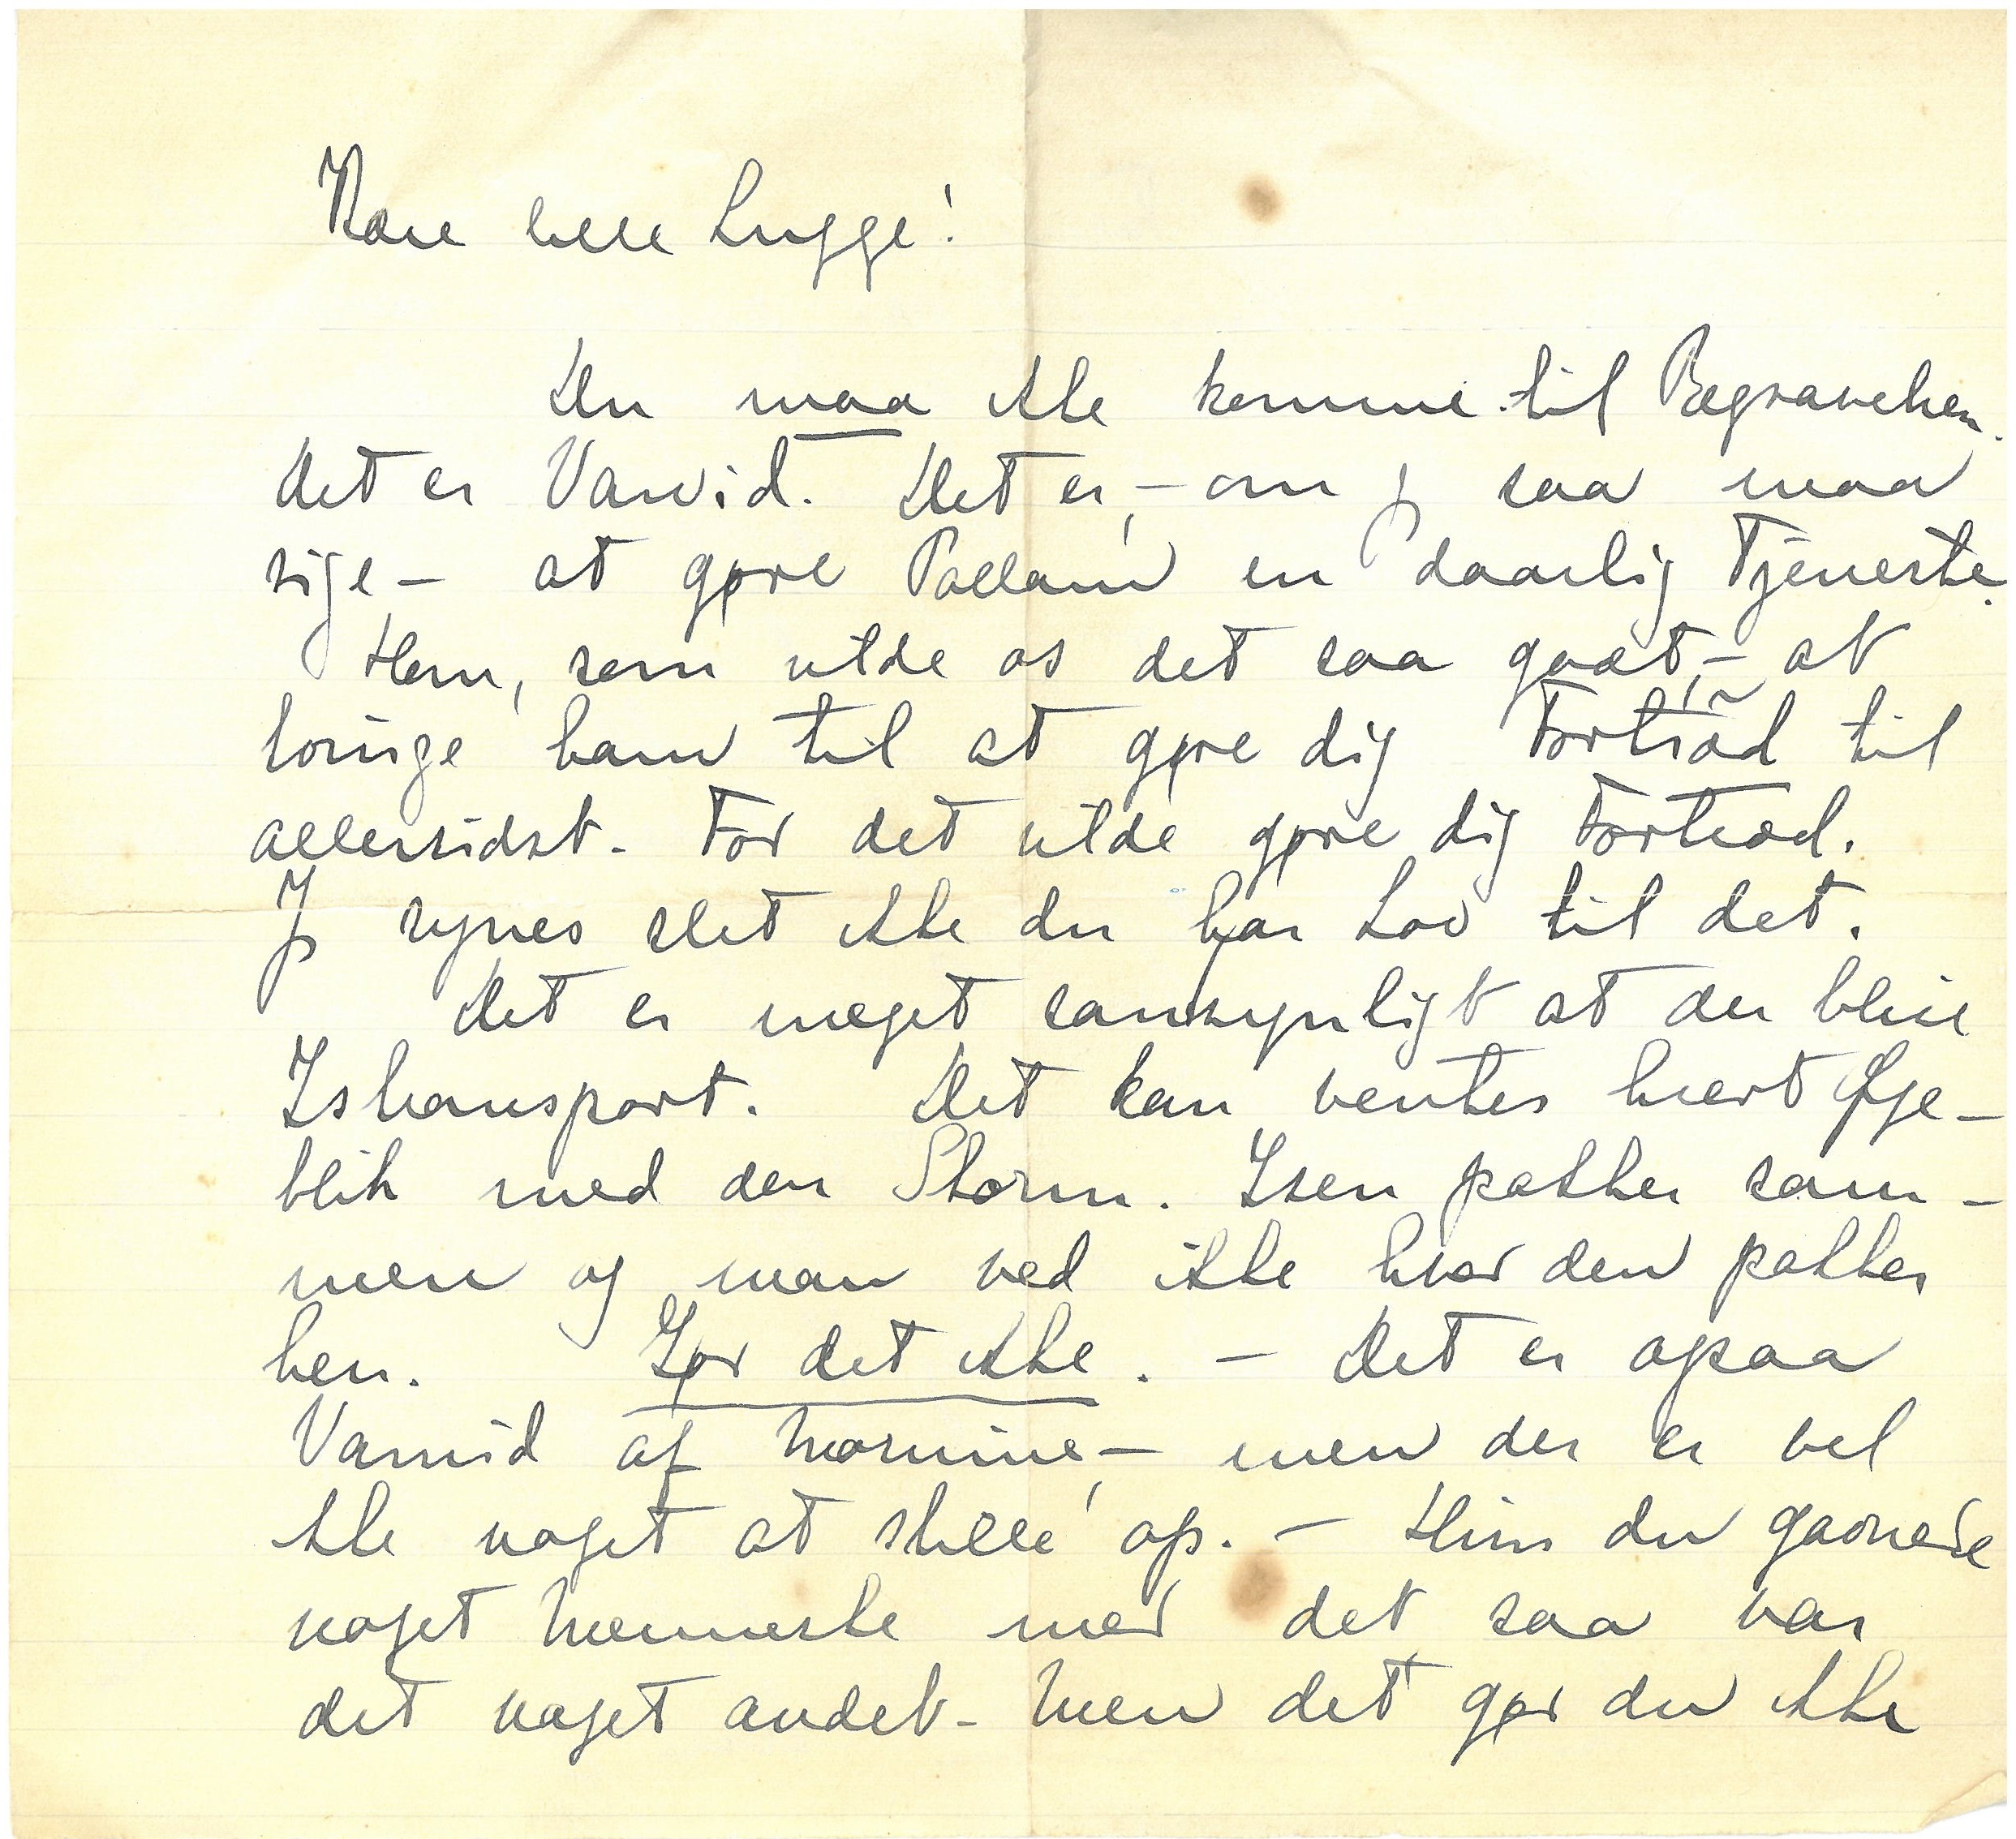 Kære lille Lugge!
Du maa ikke komme til Begravelsen.
Det er Vanvid. Det er, - om jeg saa maa
sige - at gøre Pallam en daarlig Tjeneste.
Ham, som vilde os det saa godt, - at
tvinge ham til at gøre dig Fortræd til
allersidst. For det vilde gøre dig Fortræd.
Jeg synes slet ikke du har Lov til det.
Det er meget sansynligt at der blive
Istransport. Det kan ventes hvert Øje-
blik med den Storm. Isen pakker sam-
men og man ved ikke hvor den pakker
hen. Gør det ikke. - Det er ogsaa
Vanvid af Mornine, - men der er vel
ikke noget at stille op. - Hvis du gavnede
noget Menneske med det saa var
det noget andet - Men det gør du ikke